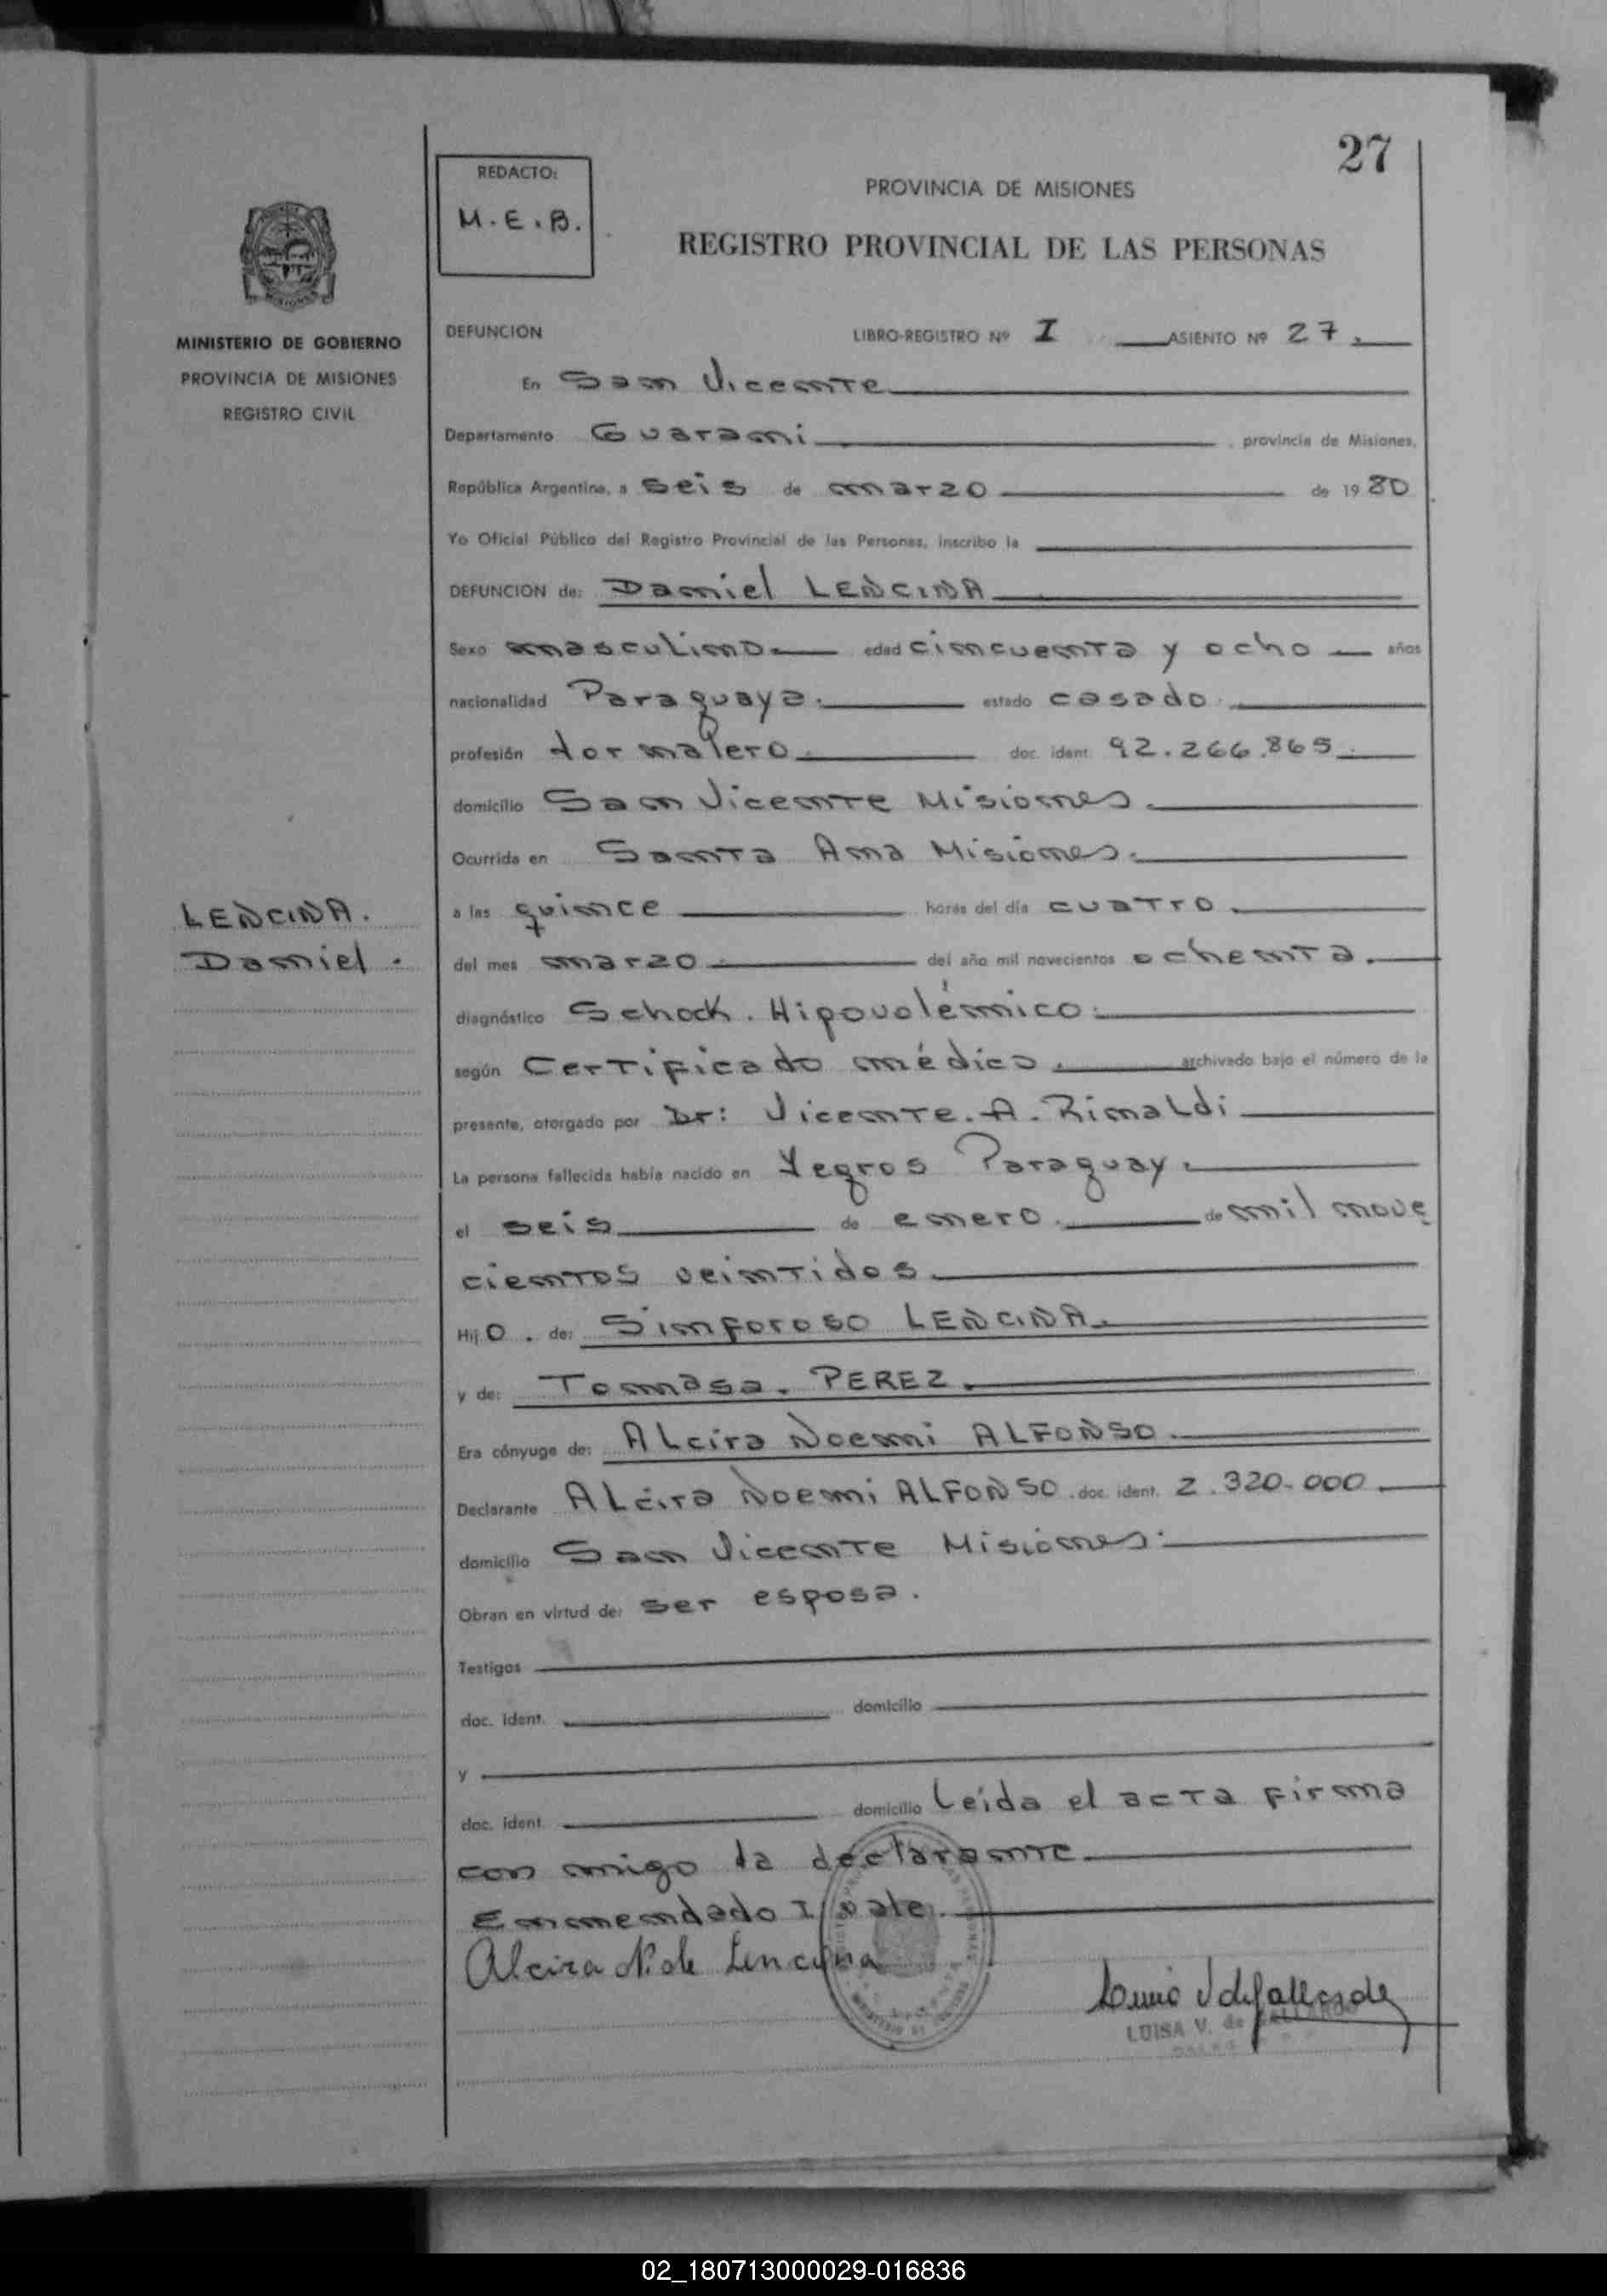 27
REDACTO:
M.E.B.
PROVINCIA DE MISIONES
REGISTRO PROVINCIAL DE LAS PERSONAS
MINISTERIO DE GOBIERNO
PROVINCIA DE MISIONES
REGISTRO CIVIL
DEFUNCION LIBRO-REGISTRO Nº I ASIENTO Nº 27.
En San Vicente
Departamento Guarani, provincia de Misiones,
República Argentina, a seis de marzo de 1980
Yo Oficial Público del Registro Provincial de las Personas, inscribo la
DEFUNCION de: Daniel LENCINA
Sexo masculino edad cincuenta y ocho años
nacionalidad Paraguaya. estado casado.
profesión Jornalero. doc. ident. 92.266.865.
domicilio San Vicente Misiones.
Ocurrida en Santa Ana Misiones.
a las quince horas del día cuatro.
LENCINA.
Daniel.
del mes marzo. del año mil novecientos ochenta.
diagnóstico Schock. Hipovolémico.
según Certificado médico. archivado bajo el número de la
presente, otorgado por Dr: Vicente. A. Rinaldi
La persona fallecida había nacido en Yegros Paraguay.
el seis de enero. de mil nove
cientos veintidos.
Hijo. de: Sinforoso LENCINA.
y de: Tomasa. PEREZ.
Era cónyuge de: Alcira Noemi ALFONSO.
Declarante Alcira Noemi ALFONSO. doc. ident. 2.320.000.
domicilio San Vicente Misiones.
Obran en virtud de: ser esposa.
Testigos
doc. ident. domicilio
y
doc. ident. domicilio Leída el acta firma
con migo la declarante.
Enmendado I vale.
Alcira N. de Lencina
LUISA V. de GALLARDO
02_180713000029-016836